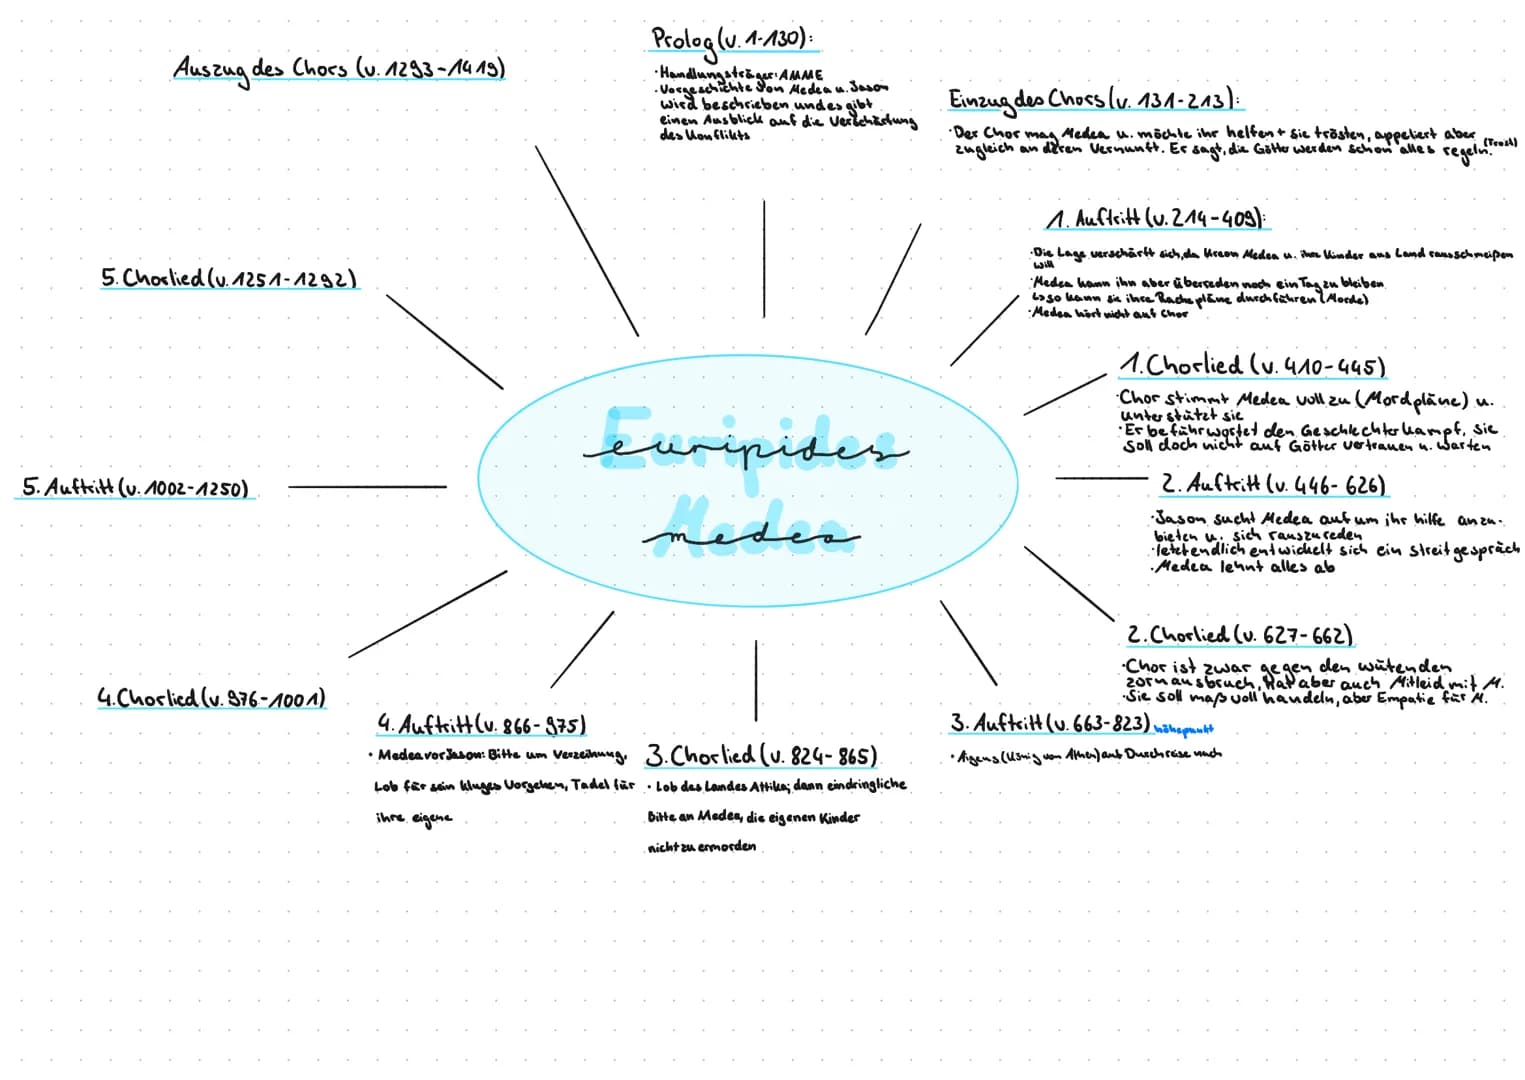 Euripides
euripides
Medea
medea
Prolog (v. 1-130):
·Handlungsträger: AMME
·Vorgeschichte von Medea u. Jason
wird beschrieben und es gibt
einen Ausblick auf die Verschärfung
des Konflikts
Einzug des Chors (v. 131-213):
·Der Chor mag Medea u. möchte ihr helfen + sie trösten, appeliert aber
zugleich an deren Vernunft. Er sagt, die Götter werden schon alles regeln. (Trost)
1. Auftritt (v. 214-409):
·Die Lage verschärft sich, da Kreon Medea u. ihre Kinder aus Land rausschmeißen
will
·Medea kann ihn aber überreden noch ein Tag zu bleiben
↳ so kann sie ihre Rachepläne durchführen (Morde)
·Medea hört nicht auf Chor
1. Chorlied (v. 410-445)
·Chor stimmt Medea voll zu (Mordpläne) u.
unterstützt sie
·Er beführwortet den Geschlechterkampf, sie
soll doch nicht auf Götter vertrauen u. warten
2. Auftritt (v. 446-626)
·Jason sucht Medea auf um ihr hilfe anzu-
bieten u. sich rauszureden
·letztendlich entwickelt sich ein streitgespräch
·Medea lehnt alles ab
2. Chorlied (v. 627-662)
·Chor ist zwar gegen den wütenden
zornausbruch, hat aber auch Mitleid mit M.
·Sie soll maßvoll handeln, aber Empatie für M.
3. Auftritt (v. 663-823) höhepunkt
• Aigeus (König von Athen) auf Durchreise nach
3. Chorlied (v. 824-865)
• Lob des Landes Attika; dann eindringliche
Bitte an Medea, die eigenen Kinder
nicht zu ermorden
4. Auftritt (v. 866-975)
• Medea vor Jason: Bitte um Verzeihung,
Lob für sein kluges Vorgehen, Tadel für
ihre eigene
4. Chorlied (v. 976-1001)
5. Auftritt (v. 1002-1250)
5. Chorlied (v. 1251-1292)
Auszug des Chors (v. 1293-1419)